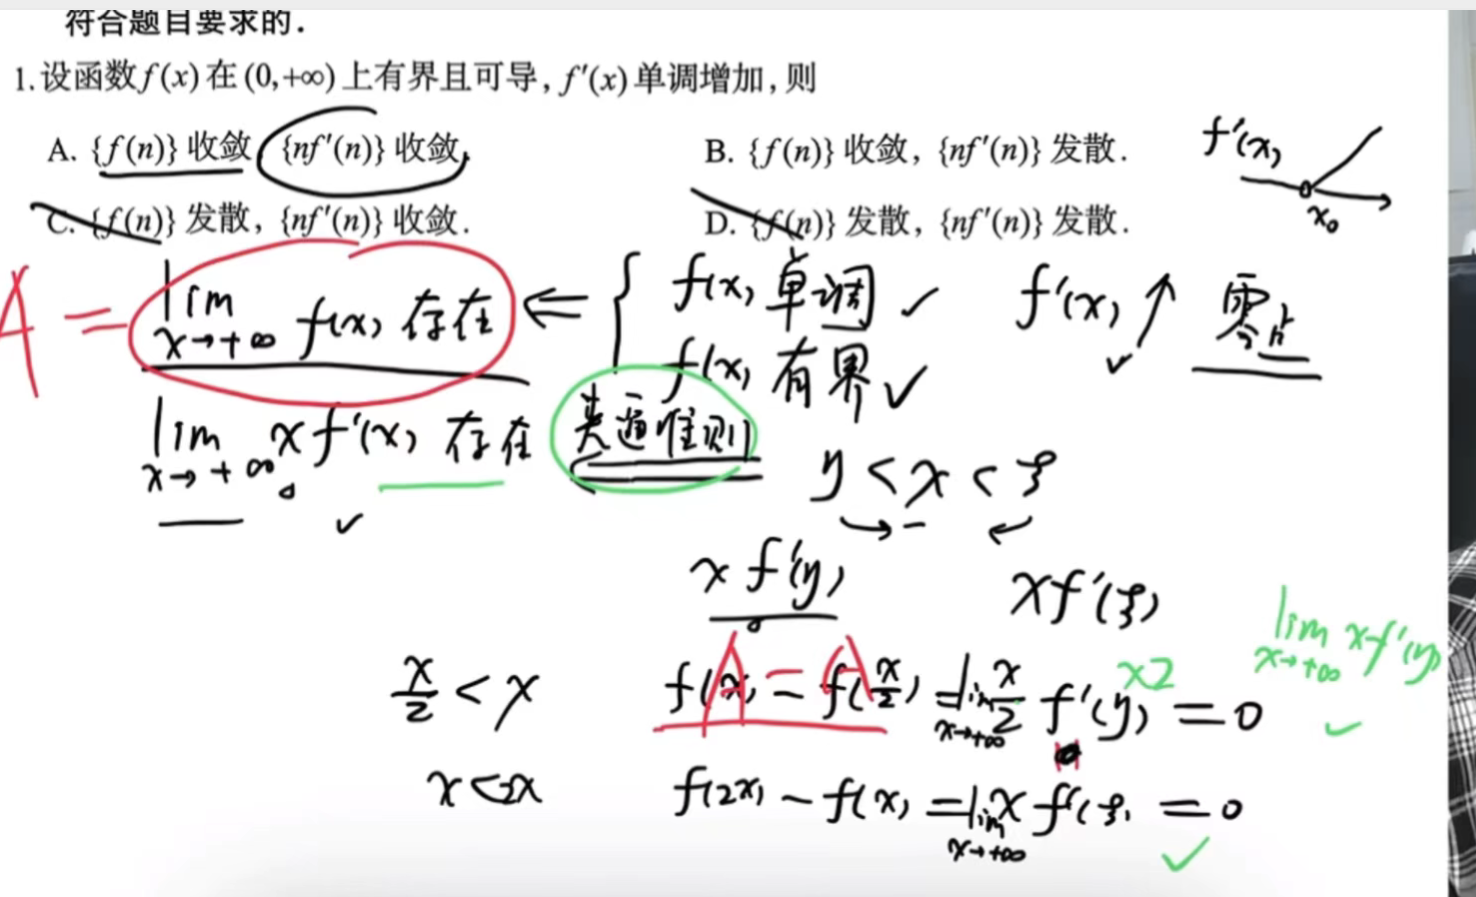 符合题目要求的.
1.设函数f(x)在(0,+∞)上有界且可导,f′(x)单调增加,则
A. {f(n)}收敛 {nf′(n)}收敛.
B. {f(n)}收敛, {nf′(n)}发散.
C. {f(n)}发散, {nf′(n)}收敛.
D. {f(n)}发散, {nf′(n)}发散.
f′(x)
x₀
A =
lim x→+∞ f(x) 存在 ⇐ { f(x) 单调 ✓
f(x) 有界 ✓
f′(x) ↑ ✓ 零点
lim x→+∞ x f′(x) 存在 夹逼准则
✓
y < x < ξ
x f′(y)
x f′(ξ)
lim x→+∞ x f′(y)
✓
x/2 < x
f(x) − f(x/2) = lim x→+∞ x/2 f′(y) = 0
A − A
×2
x < 2x
f(2x) − f(x) = lim x→+∞ x f′(ξ) = 0
✓